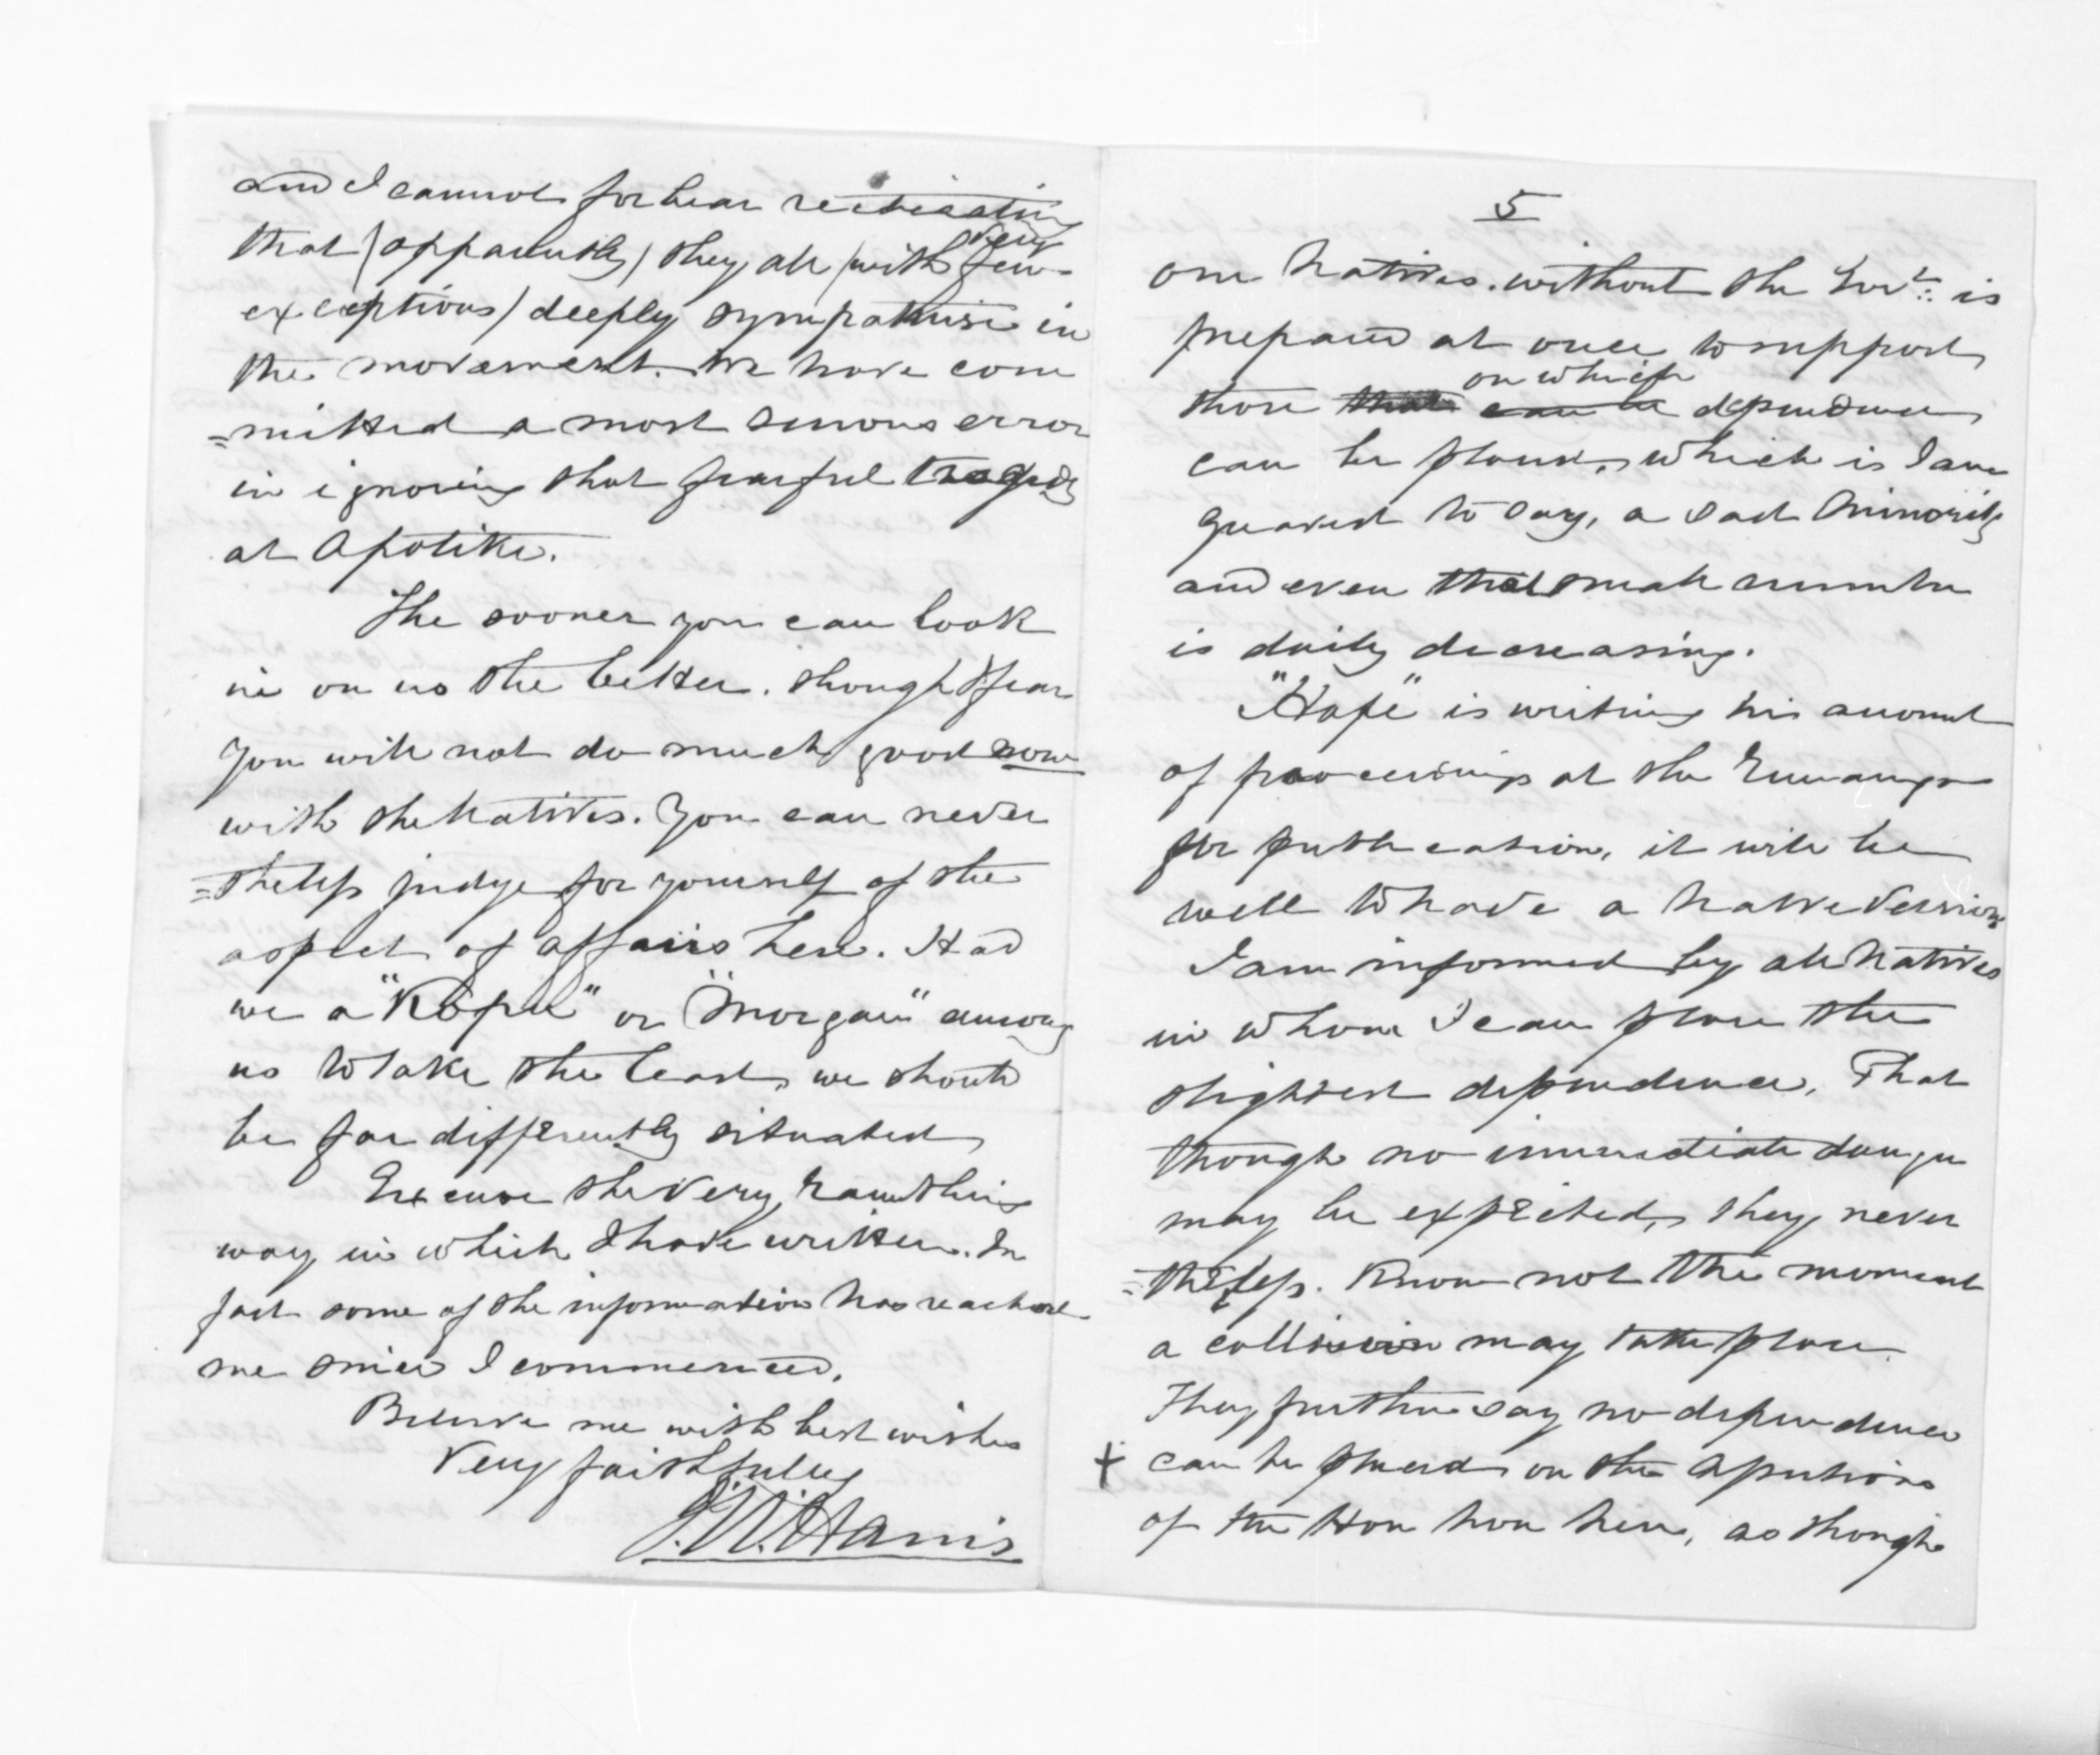 and I cannot forbear reiterating
that (apparently) they all (with very few
exceptions) deeply sympathise in
the movement. We have com
=mitted a most serious error
in ignoring that fearful tragedy
at Opotiki.
The sooner you can look
in on us the better. though I fear
you will not do much good now
with the Natives. You can never
=theless judge for yourself of the
aspect of affairs here. Had
we a "Ropu" or "Morgan" among
us to take the lead, we should
be far differently situated
Excuse the very rambling
way in which I have written. In
fact some of the information has reached
me since I commenced.
Believe me with best wishes
Very faithfully
J.W. Harris
5
our Natives. without the Govt. is
prepared at once to support
those that can be on which dependence
can be placed, which is I am
grieved to say, a sad minority
and even that small number
is daily decreasing.
"Hape" is writing his account
of proceedings at the
for publication, it will be
well to have a native version
I am informed by all Natives
in whom I can place the
slightest dependence, That
though no immediate danger
may be expected, they never
=theless. Know not the moment
a collision may take place
They further say no dependence
+ can be placed on the assertions
of the Hou hou here, as though